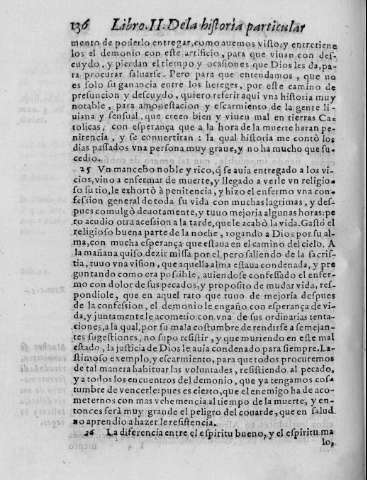 136 Libro.II.De la historia particular
mento de poderlo entregar, como auemos visto; y entretiene
los el demonio con este artificio, para que viuan con des-
cuydo, y pierdan el tiempo y ocasiones que Dios les da, pa-
ra procurar saluarse. Pero para que entendamos, que no
es solo su ganancia entre los hereges, por este camino de
presuncion y descuydo, quiero referir aqui vna historia muy
notable, para amonestacion y escarmiento de la gente li-
uiana y sensual, que creen bien y viuen mal en tierras Ca-
tolicas, con esperança que a la hora de la muerte haran pe-
nitencia, y se conuertiran: la qual historia me contò los
dias passados vna persona muy graue, y no ha mucho que su-
cedio.
25 Vn mancebo noble y rico, q̃ se auia entregado a los vi-
cios, vino a enfermar de muerte, y llegado a verle vn religio-
so su tio, le exhortò à penitencia, y hizo el enfermo vna con-
fession general de toda su vida con muchas lagrimas, y des-
pues comulgò deuotamente, y tuuo mejoria algunas horas: pe
ro acudio otra acession a la tarde, que le acabò la vida. Gastò el
religioso buena parte de la noche, rogando a Dios por su al-
ma, con mucha esperança que estaua en el camino del cielo. A
la mañana quiso dezir missa por el, pero saliendo de la sacris-
tia, tuuo vna vision, que aquella alma estaua condenada, y pre
guntando como era possible, auiendose confessado el enfer-
mo con dolor de sus pecados, y proposito de mudar vida, res-
pondiole, que en aquel rato que tuuo de mejoria despues
de la confession, el demonio le engaño con esperança de vi-
da, y juntamente le acometio con vna de sus ordinarias tenta-
ciones, a la qual, por su mala costumbre de rendirse a semejan-
tes sugestiones, no supo resistir, y que muriendo en este mal
estado, la justicia de Dios le auia condenado para siempre. La-
stimoso exemplo, y escarmiento, para que todos procuremos
de tal manera habituar las voluntades, resistiendo al pecado,
y a todos los encuentros del demonio, que ya tengamos cos-
tumbre de vencerle: pues es cierto, que el enemigo ha de aco-
meternos con mas vehemencia al tiempo de la muerte, y en-
tonces serà muy grande el peligro del couarde, que en salud
no aprendio a hazerle resistencia.
26 La diferencia entre el espiritu bueno, y el espiritu ma
lo,